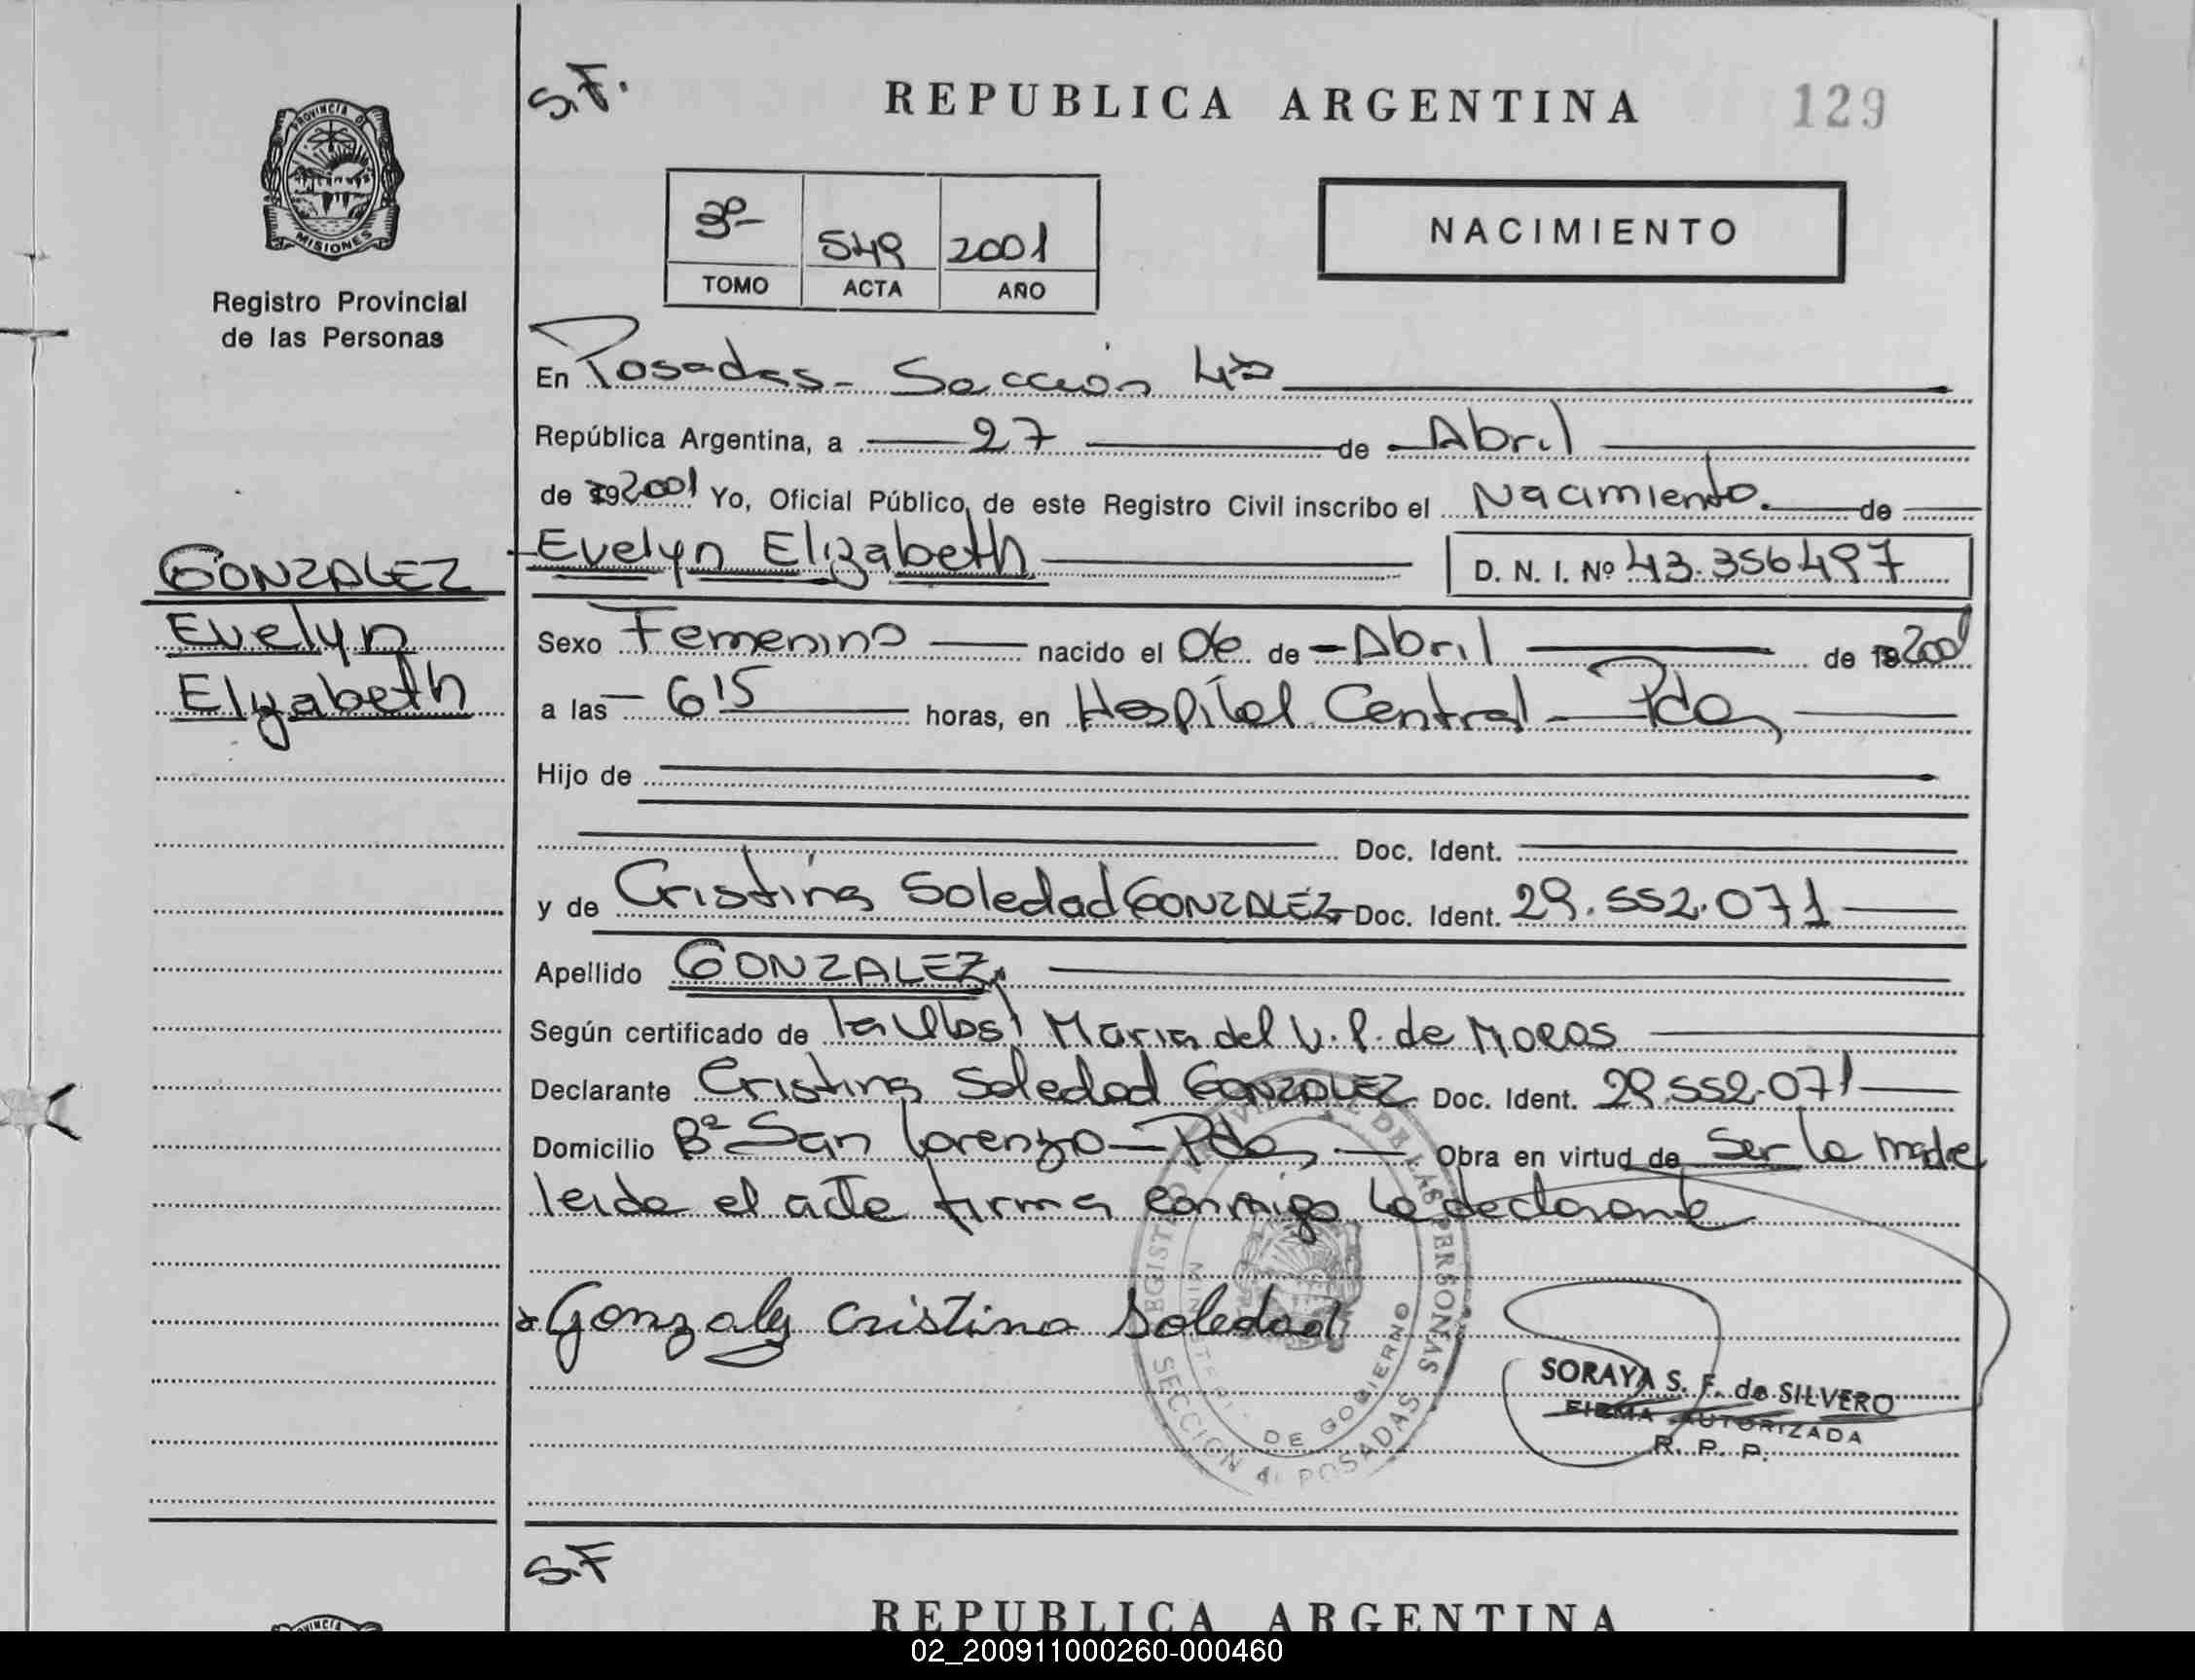 S.F.
REPUBLICA ARGENTINA
129
PROVINCIA DE
MISIONES
Registro Provincial
de las Personas
3º
549
2001
TOMO
ACTA
AÑO
NACIMIENTO
En Posadas - Sección 4ª
República Argentina, a 27 de Abril
de 192001 Yo, Oficial Público de este Registro Civil inscribo el Nacimiento. de
Evelyn Elizabeth D. N. I. Nº 43.356.497
GONZALEZ
Evelyn
Elizabeth
Sexo Femenino nacido el 06 de Abril de 192001
a las 615 horas, en Hospital Central - Pdas
Hijo de
Doc. Ident.
y de Cristina Soledad GONZALEZ Doc. Ident. 29.552.071
Apellido GONZALEZ
Según certificado de María del V. P. de MORAS
Declarante Cristina Soledad GONZALEZ Doc. Ident. 29.552.071
Domicilio Bº San Lorenzo - Pdas Obra en virtud de Ser la madre
leida el acta firma conmigo la declarante
Gonzalez Cristina Soledad
REGISTRO PROVINCIAL DE LAS PERSONAS
MINISTERIO DE GOBIERNO
SECCION 4 POSADAS
SORAYA S. F. de SILVERO
FIRMA AUTORIZADA
R. P. P.
S.F
REPUBLICA ARGENTINA
02_200911000260-000460